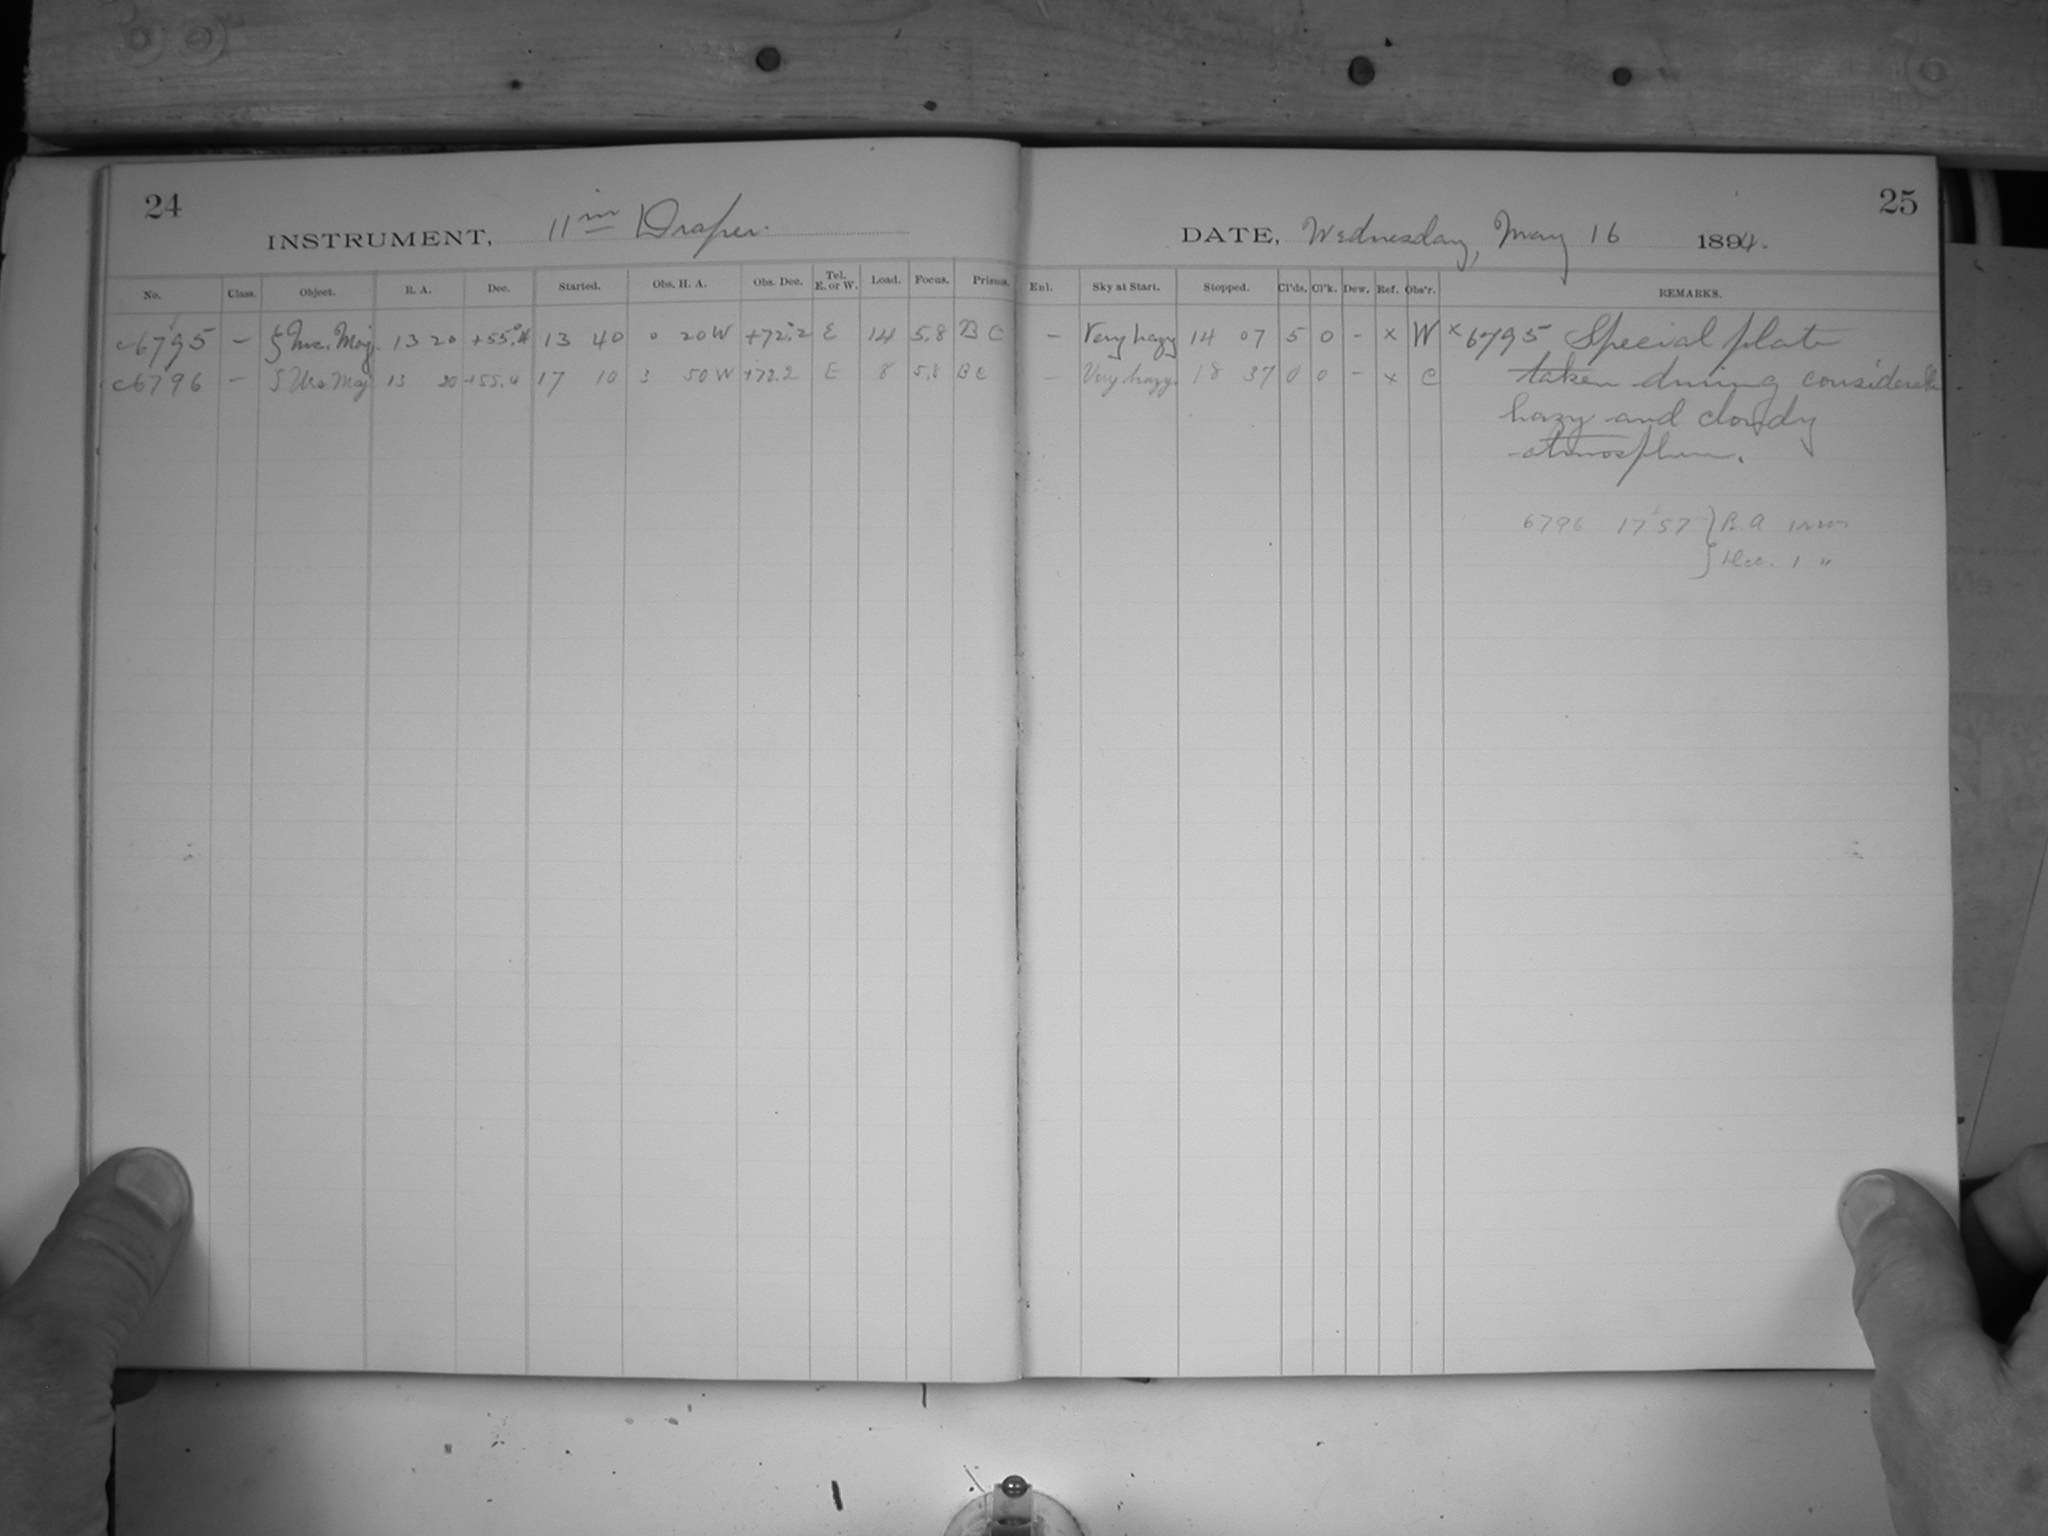 24
INSTRUMENT, 11 in Draper.
No. Class. Object. R. A. Dec. Started. Obs. H. A. Obs. Dec. Tel. E. or W. Load. Focus. Prisms.
c6795 – ζ Urs. Maj. 13 20 +55.4 13 40 0 20W +72.2 E 14 5.8 B C
c6796 – ζ Urs Maj 13 20 +55.4 17 10 3 50W +72.2 E 8 5.8 B C
25
DATE, Wednesday, May 16 1894.
Enl. Sky at Start. Stopped. Cl'ds. Cl'k. Dew. Ref. Obs'r. REMARKS.
– Very hazy 14 07 5 0 – x W x 6795 Special plate
– Very hazy. 18 37 0 0 – x C taken during considerable
hazy and cloudy
atmosphere.
6796 17 57 } R. A
} Dec. 1 "